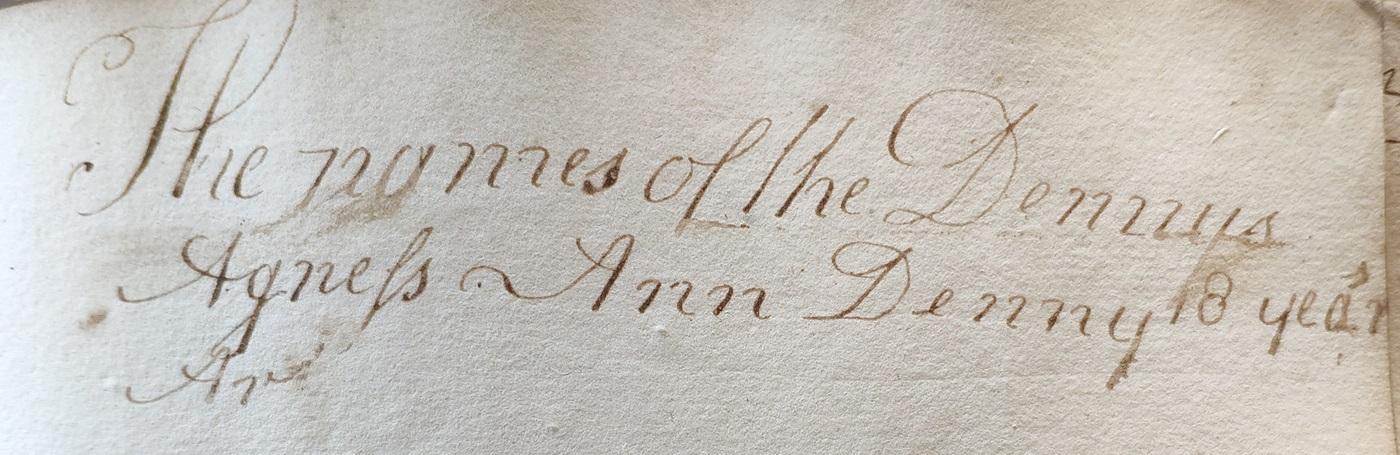 The names of the Dennys
Agneſs Ann Denny 18 years
An